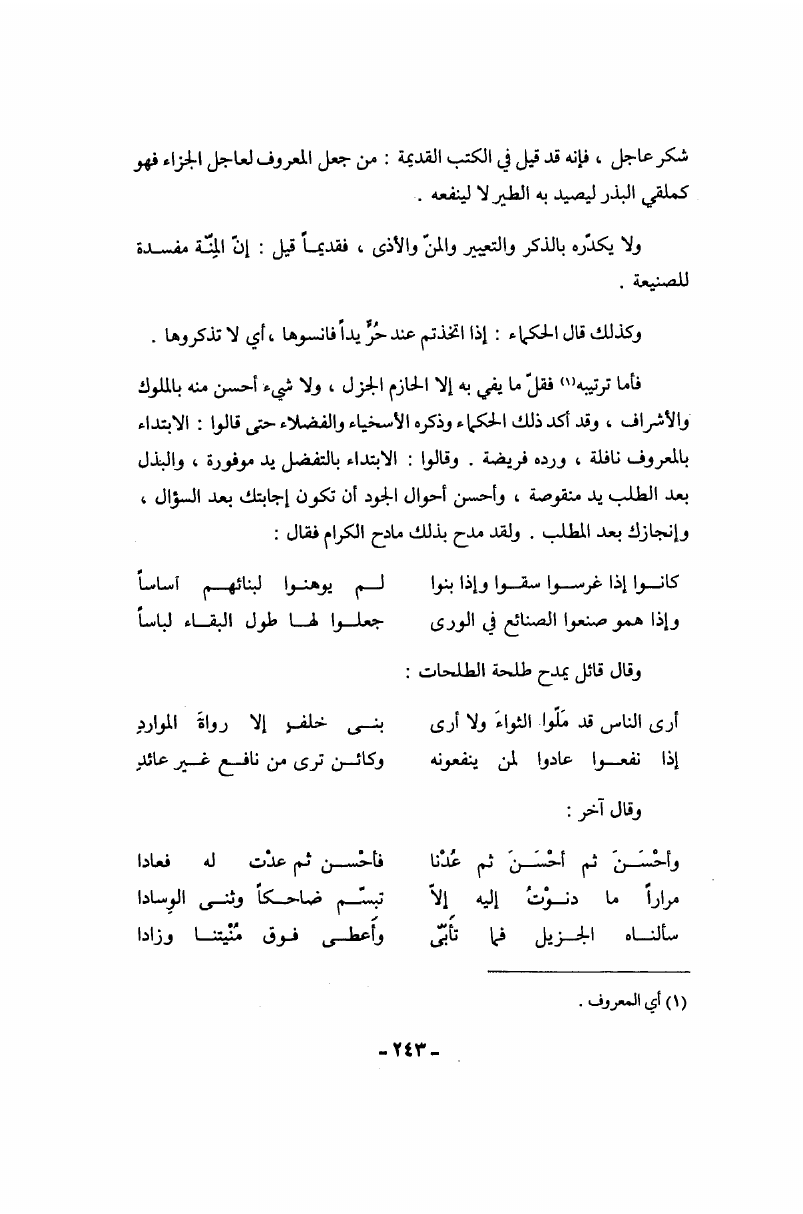 شكر عاجل ، فإنه قد قيل في الكتب القديمة : من جعل المعروف لعاجل الجزاء فهو
كملقي البذر ليصيد به الطير لا لينفعه .
ولا يكدّره بالذكر والتعيير والمنّ والأذى ، فقديماً قيل : إنّ المِنّة مفسدة
للصنيعة .
وكذلك قال الحكماء : إذا اتخذتم عند حُرٍّ يداً فانسوها ، أي لا تذكروها .
فأما ترتيبه(١) فقلّ ما يفي به إلا الحازم الجزل ، ولا شيء أحسن منه بالملوك
والأشراف ، وقد أكد ذلك الحكماء وذكره الأسخياء والفضلاء حتى قالوا : الابتداء
بالمعروف نافلة ، ورده فريضة . وقالوا : الابتداء بالتفضل يد موفورة ، والبذل
بعد الطلب يد منقوصة ، وأحسن أحوال الجود أن تكون إجابتك بعد السؤال ،
وإنجازك بعد المطلب . ولقد مدح بذلك مادح الكرام فقال :
كانوا إذا غرسوا سقوا وإذا بنوا لم يوهنوا لبنائهم أساساً
وإذا همو صنعوا الصنائع في الورى جعلوا لها طول البقاء لباساً
وقال قائل يمدح طلحة الطلحات :
أرى الناس قد مَلّوا الثواءَ ولا أرى بنى خلفٍ إلا رواةَ المواردِ
إذا نفعوا عادوا لمن ينفعونه وكائن ترى من نافع غير عائدِ
وقال آخر :
وأحْسَنَ ثم أحْسَنَ ثم عُدْنا فأحْسن ثم عدْت له فعادا
مراراً ما دنوْتُ إليه إلاّ تبسّم ضاحكاً وثنى الوِسادا
سألناه الجزيل فما تأَبّىٰ وأَعطى فوق مُنْيتنا وزادا
(١) أي المعروف .
- ٢٤٣ -